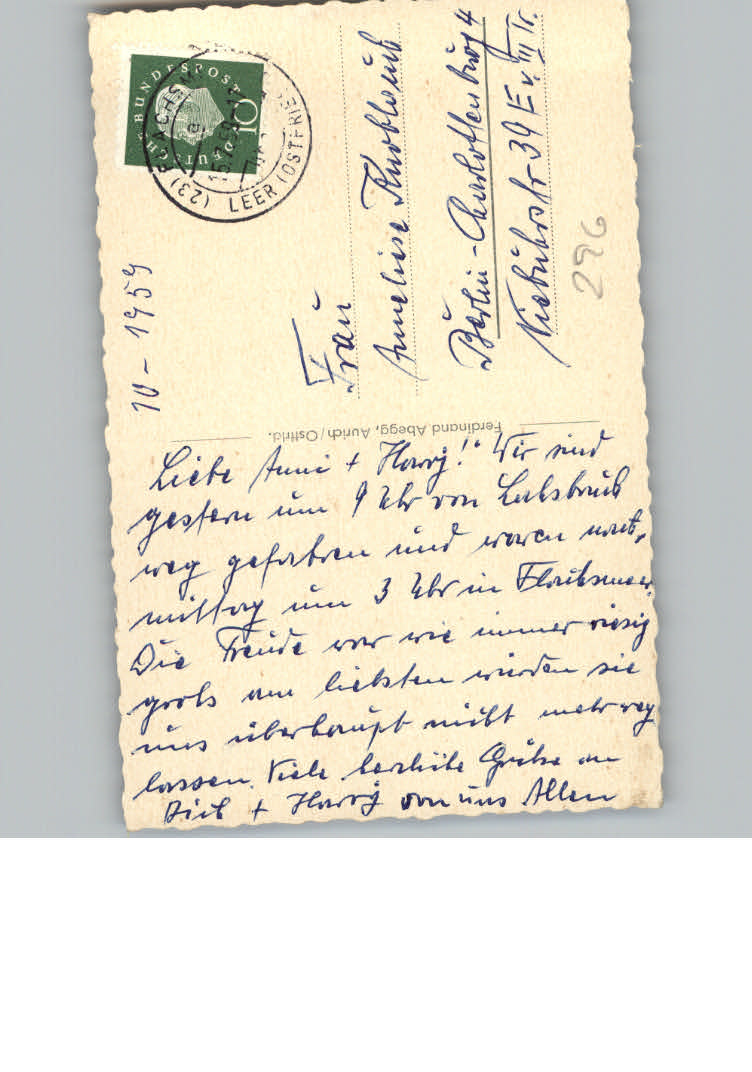 Liebe Anni + Harry! Wir sind
gestern um 9 Uhr von
weg gefahren und waren nach-
mittag um 3 Uhr in
Die Freude war wie immer riesig
groß am liebsten würden sie
uns überhaupt nicht mehr weg
lassen. Viele herzliche Grüße an
Dich + Harry von uns Allen
Ferdinand Abegg, Aurich/Ostfrid.
10 - 1959
DEUTSCHE BUNDESPOST
10
(23) LEER (OSTFRIES
Frau
Anneliese Knoblauch
Berlin-Charlottenburg 4
Niebuhrstr 39 E v. III Tr.
296